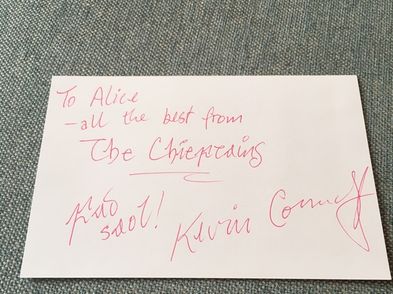 To Alice
- all the best from
The Chieftains
Fad
saol!
Kevin Conneff